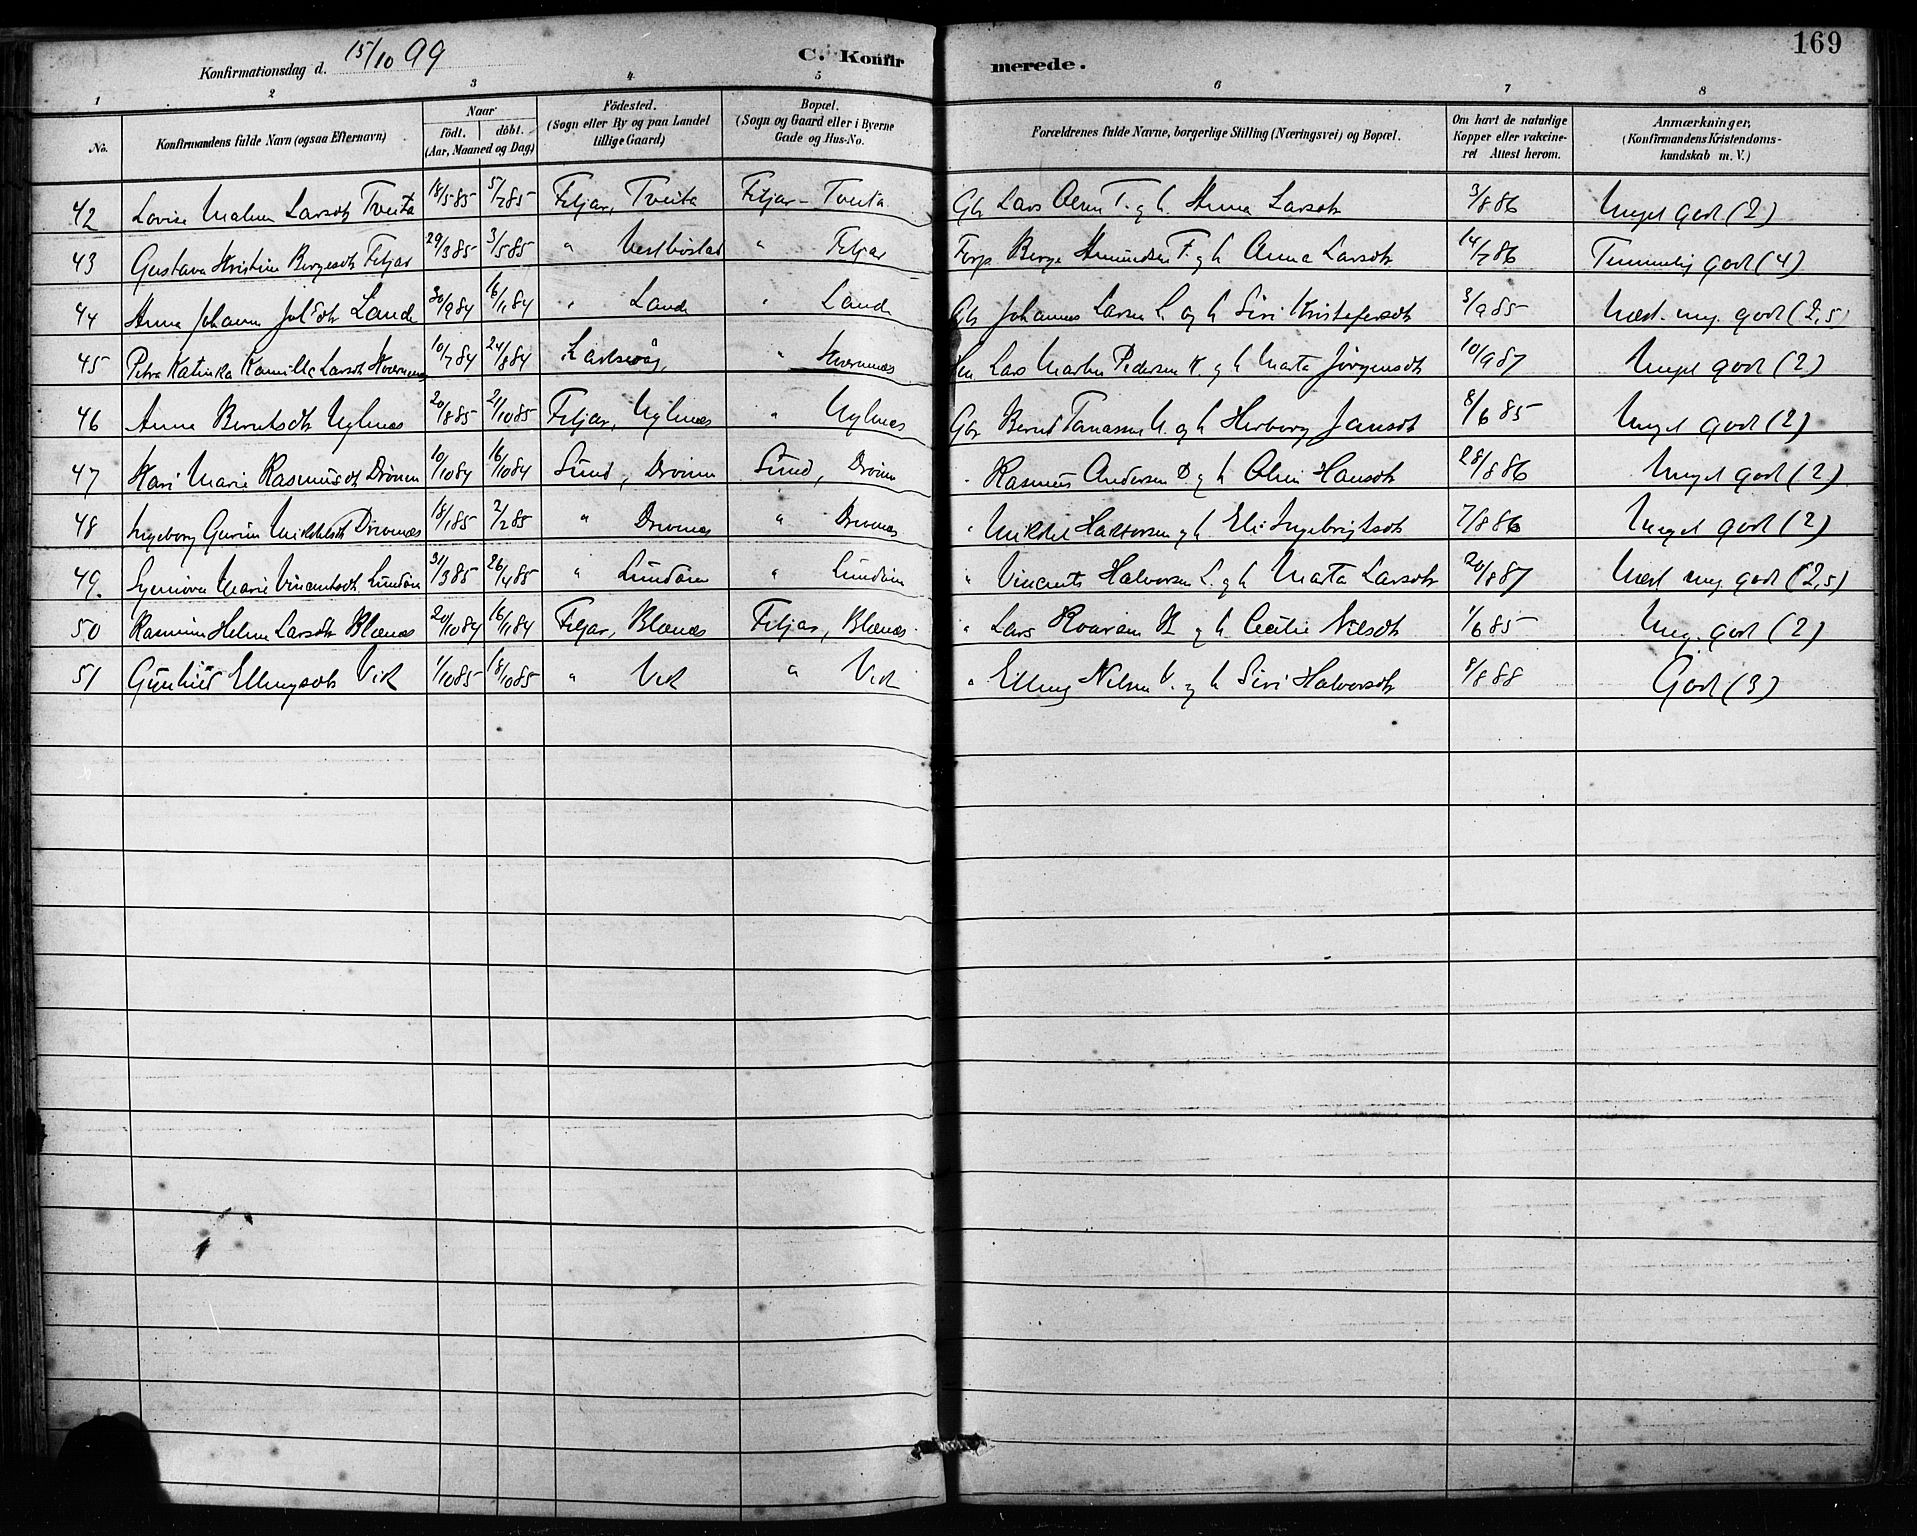 169
Konfirmationsdag d. 15/10 99
C. Konfirmerede.
1 2 3 4 5 6 7 8
No. Konfirmandens fulde Navn (ogsaa Efternavn) Naar födt. döbt. (Aar, Maaned og Dag) Födested. (Sogn eller By og paa Landet tillige Gaard) Bopæl. (Sogn og Gaard eller i Byerne Gade og Hus-No. Forældrenes fulde Navne, borgerlige Stilling (Næringsvei) og Bopæl. Om havt de naturlige Kopper eller vakcineret Attest herom. Anmærkninger, (Konfirmandens Kristendomskundskab m. V.)
42 Lovise Malene Larsdtr Tveita 18/5 85 5/7 85 Fitjar, Tveita Fitjar - Tveita Gbr Lars Olsen T. og h. Anna Larsdtr 3/8 86 Meget godt (2)
43 Gustava Kristine Borgesdtr Fitjar 29/3 85 3/5 85 " Vestbøstad " Fitjar Forp Berge Amundsen F. og h Anna Larsdtr 14/7 86 Temmelig godt (4)
44 Anna Johanna Joh'sdtr Lande 30/9 84 16/11 84 " Lande " Lande Gbr Johannes Larsen L. og h Siri Kristofersdtr 3/9 85 Næst. meg. godt (2,5)
45 Petra Katinka Kamilla Larsdtr Kvernenes 10/7 84 24/8 84 " Kvernenes Lars Martin Pedersen K. og h Marta Jörgensdtr 10/9 87 Meget godt (2)
46 Anna Berntsdtr Uglenes 20/8 85 21/10 85 Fitjar, Uglenes " Uglenes Gbr Bernt Tomassen U. og h Herborg Jansdtr 8/6 85 Meget godt (2)
47 Kari Marie Rasmusdtr 10/10 84 16/10 84 Sund, Sund, " Rasmus Andersen D. og h Oline Hansdtr 28/8 86 Meget godt (2)
48 Ingeborg Gurine Mikkelsdtr Drivenes 18/1 85 2/2 85 " Drivenes " Drivenes " Mikkel Haktorsen og h. Eli Ingebrigtsdtr 7/8 86 Meget godt (2)
49. Synnöva Marie Vincentsdtr 31/3 85 26/4 85 " " " Vincents Halvorsen L. og h Marta Larsdtr 20/8 87 Næst meg godt (2,5)
50 Rasmine Helene Larsdtr Blænes 20/10 84 16/11 84 Fitjar, Blænes Fitjar, Blænes " Lars og h Cecilie Nilsdtr 1/6 85 Meg. godt (2)
51 Gunhild Ellingsdtr Vik 1/10 85 18/10 85 " Vik " Vik " Elling Nilsen V. og h Siri Halvorsdtr 8/8 88 Godt (3)